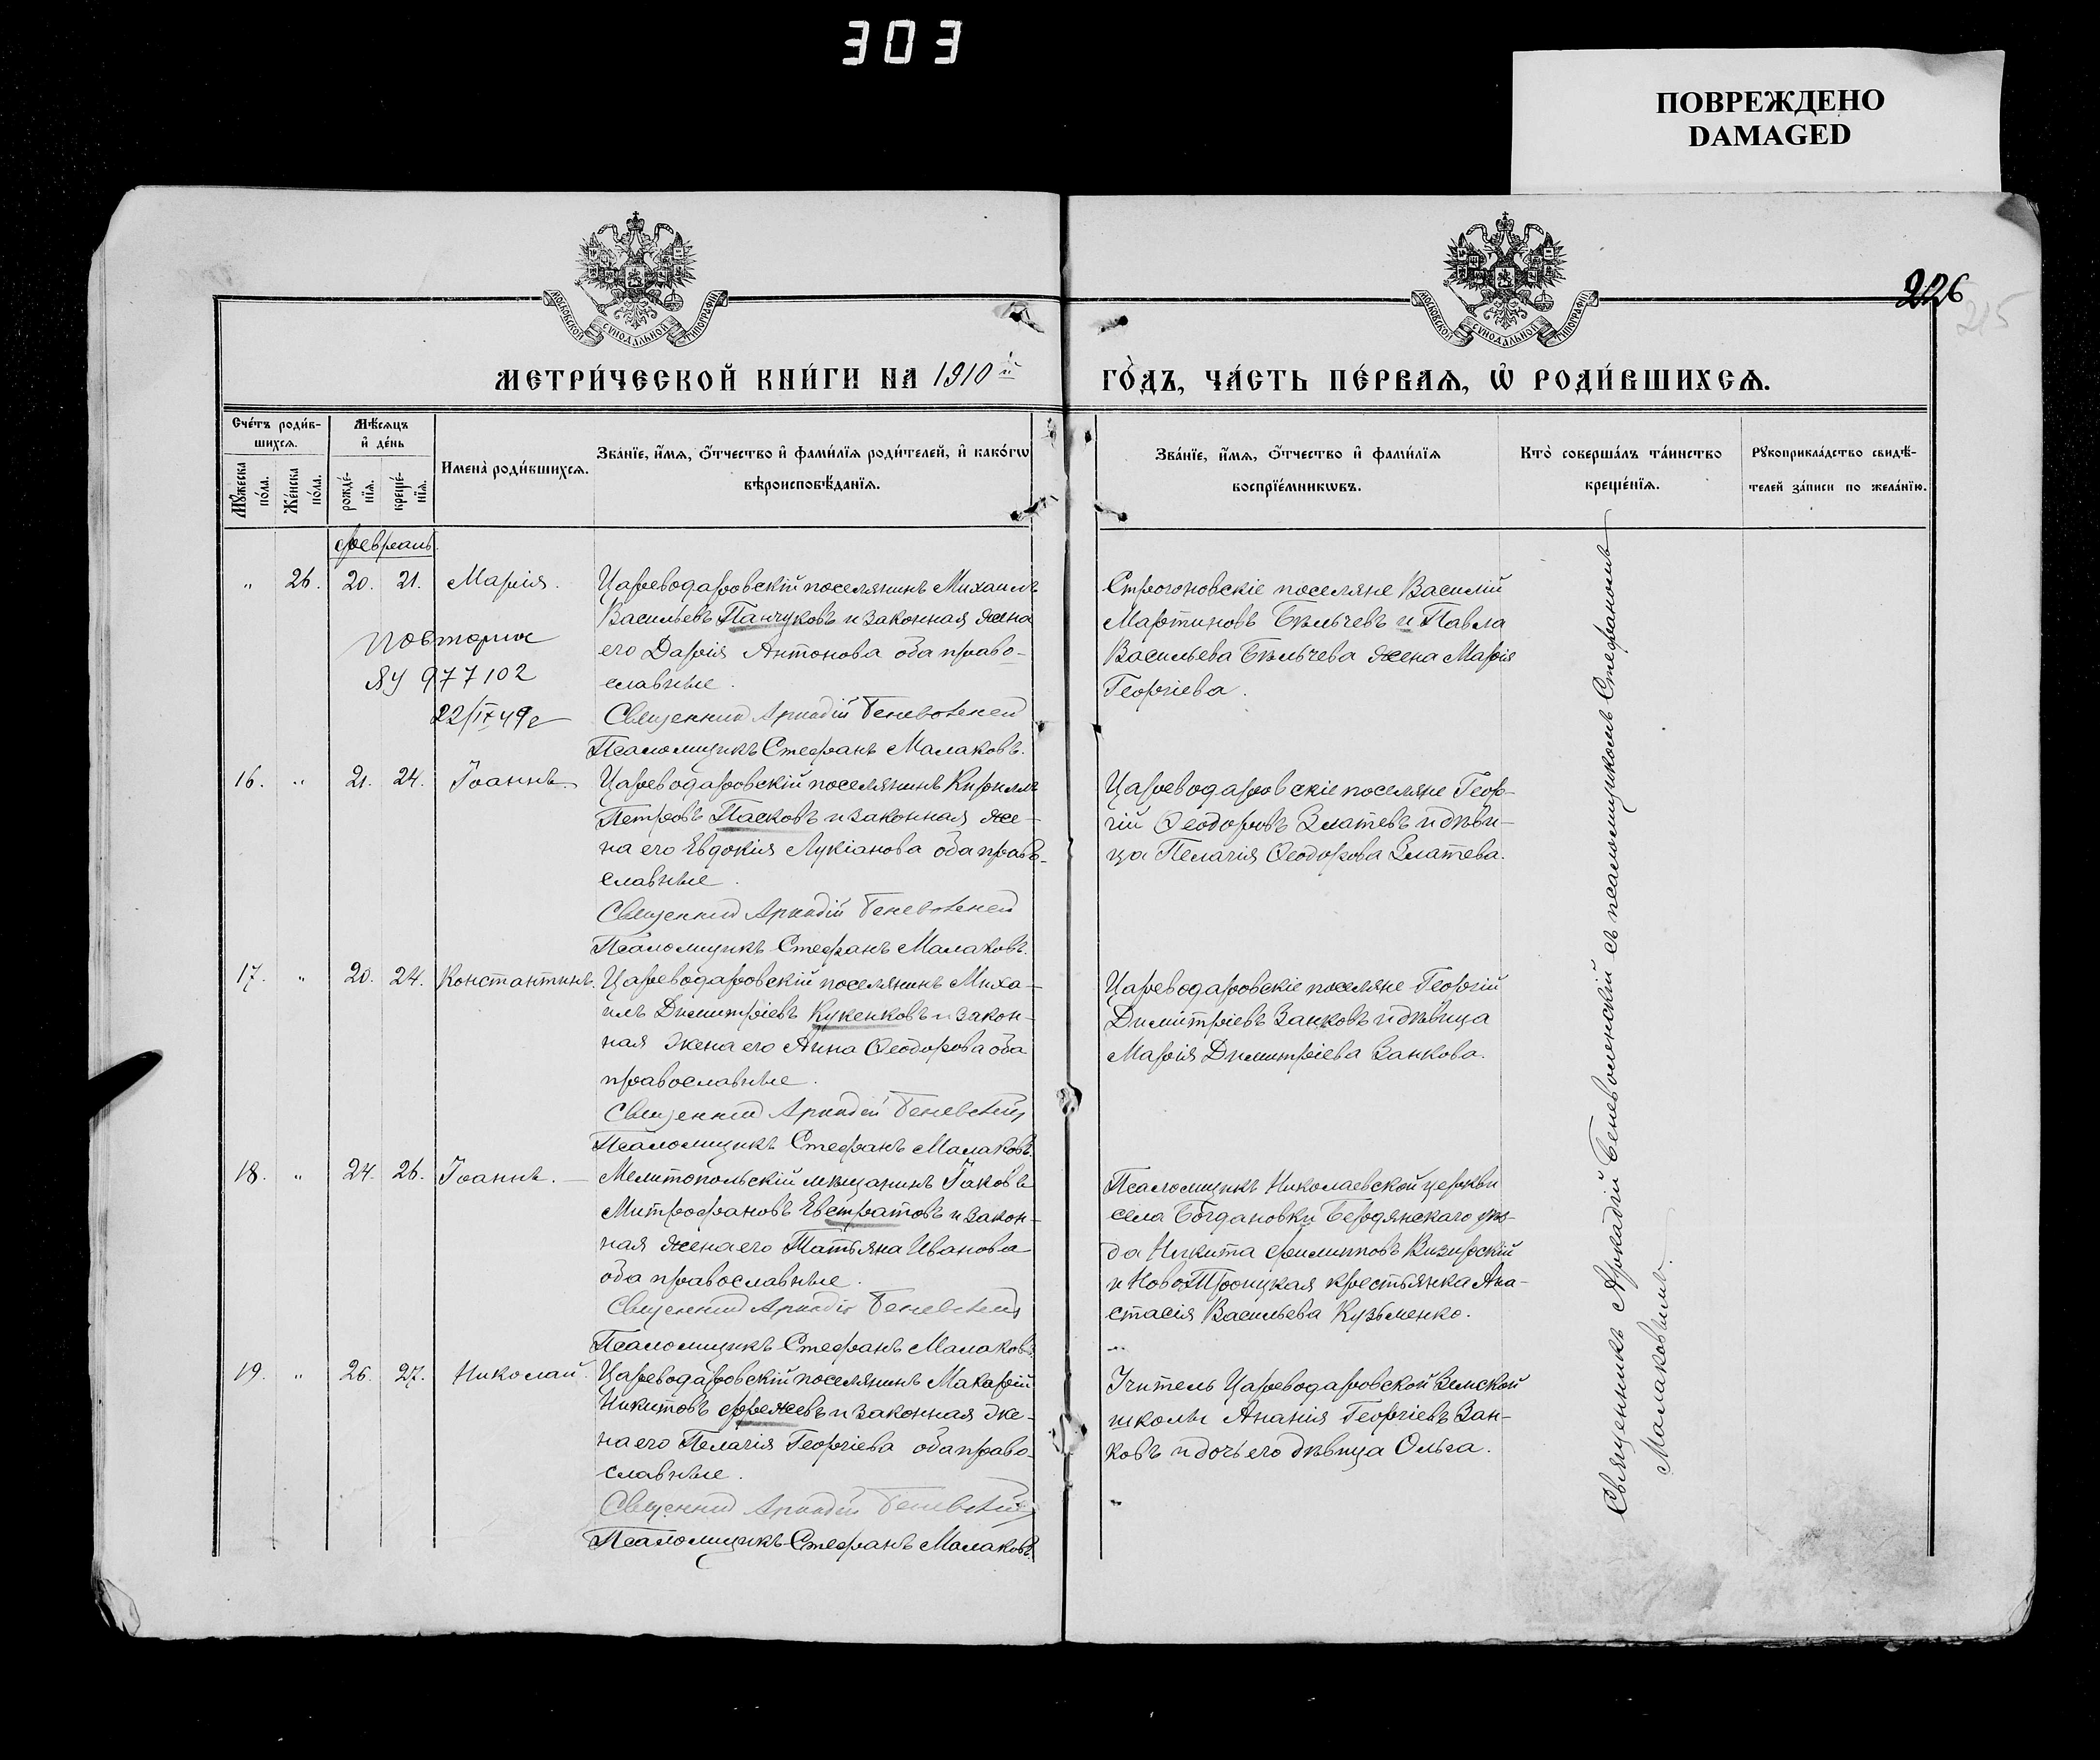 303
ПОВРЕЖДЕНО
DAMAGED
МОСКОВСКОЙ СѴНОДАЛЬНОЙ ТИПОГРАФІИ
МОСКОВСКОЙ СѴНОДАЛЬНОЙ ТИПОГРАФІИ
226
215
МЕТРИ́ЧЕСКОЙ КНИ́ГИ НА 1910й
ГО́ДЪ, ЧА́СТЬ ПЕ́РВАѦ, Ѡ҆ РОДИ́ВШИХСѦ.
Сче́тъ роди́в-
шихсѧ.
Мѣ́сѧцъ
и҆ де́нь
Мꙋ́жеска по́ла.
Же́нска по́ла.
рожде́-нїѧ.
креще́-нїѧ.
Имена̀ роди́вшихсѧ.
Зва́нїе, и҆́мѧ, ѻ҆́тчество и҆ фами́лїѧ роди́телей, и҆ како́гѡ
вѣроисповѣ́данїѧ.
Зва́нїе, и҆́мѧ, ѻ҆́тчество и҆ фами́лїѧ
воспрїе́мникѡвъ.
Кто̀ соверша́лъ та́инство
креще́нїѧ.
Рꙋкоприкла́дство свидѣ́-
телей за́писи по жела́нїю.
Февраль.
" 26. 20. 21. Марія.
Цареводаровскій поселянинъ Михаилъ
Васильевъ Панчуковъ и законная жена
его Дарія Антонова оба право-
славные.
Священник Аркадій Беневоленский
Псаломщикъ Стефанъ Малаковъ.
повторно
ЯУ 977102
22/IX 49г
Строгоновскіе поселяне Василій
Мартиновъ Бѣльчевъ и Павла
Васильева Бѣльчева жена Марія
Георгіева.
16. " 21. 24. Іоаннъ.
Цареводаровскій поселянинъ Кириллъ
Петровъ Пасковъ и законная же-
на его Евдокія Лукіанова оба право-
славные.
Священник Аркадій Беневоленский
Псаломщикъ Стефанъ Малаковъ.
Цареводаровскіе поселяне Геор-
гій Ѳеодоровъ Златевъ и дѣви-
ца Пелагія Ѳеодорова Златева.
17. " 20. 24. Константинъ.
Цареводаровскій поселянинъ Миха-
илъ Димитріевъ Кукенковъ и закон-
ная жена его Анна Ѳеодорова оба
православные.
Священник Аркадій Беневский
Псаломщикъ Стефанъ Малаковъ.
Цареводаровскіе поселяне Георгій
Димитріевъ Занковъ и дѣвица
Марія Димитріева Занкова.
18. " 24. 26. Іоаннъ.
Мелитопольскій мѣщанинъ Іаковъ
Митрофановъ Евстратовъ и закон-
ная жена его Татьяна Иванова
оба православные.
Священник Аркадій Беневский
Псаломщикъ Стефанъ Малаковъ.
Псаломщикъ Николаевской церкви
села Богдановки Бердянскаго уѣз-
да Никита Филипповъ Визирскій
и НовоТроицкая крестьянка Ана-
стасія Васильева Кузьменко.
19. " 26. 27. Николай.
Цареводаровскій поселянинъ Макарій
Никитовъ Фрежевъ и законная же-
на его Пелагія Георгіева оба право-
славные.
Священник Аркадій Беневский
Псаломщикъ Стефанъ Малаковъ.
Учитель Цареводаровской Земской
школы Ананія Георгіевъ Зан-
ковъ и дочь его дѣвица Ольга.
Священникъ Аркадій Беневоленскій съ псаломщикомъ Стефаномъ
Малаковымъ.